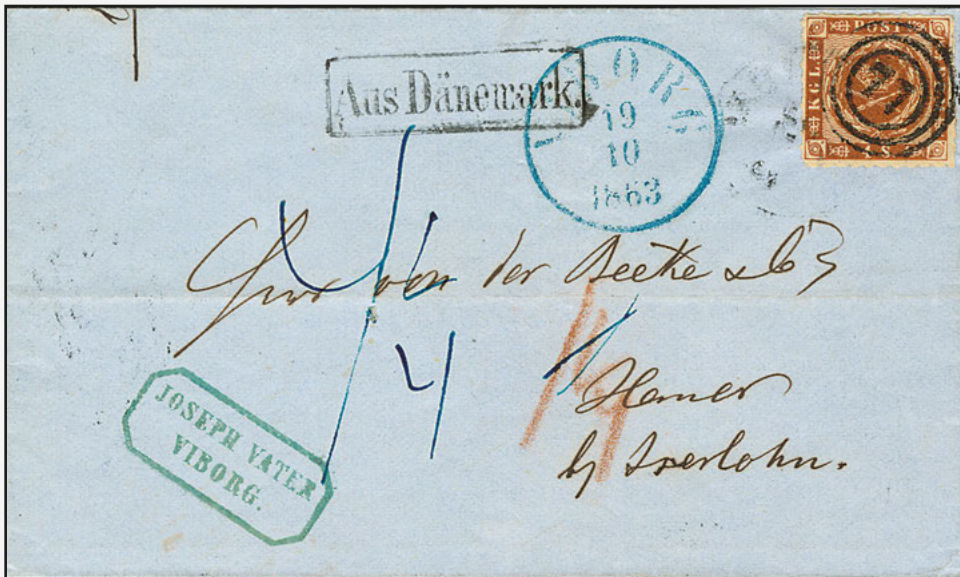 Aus Dänemark.
VIBORG
19
10
1863
KGL
POST
4 S.
77
von der Beeke & Co
4
Hemer
by Iserlohn.
JOSEPH VATER
VIBORG.